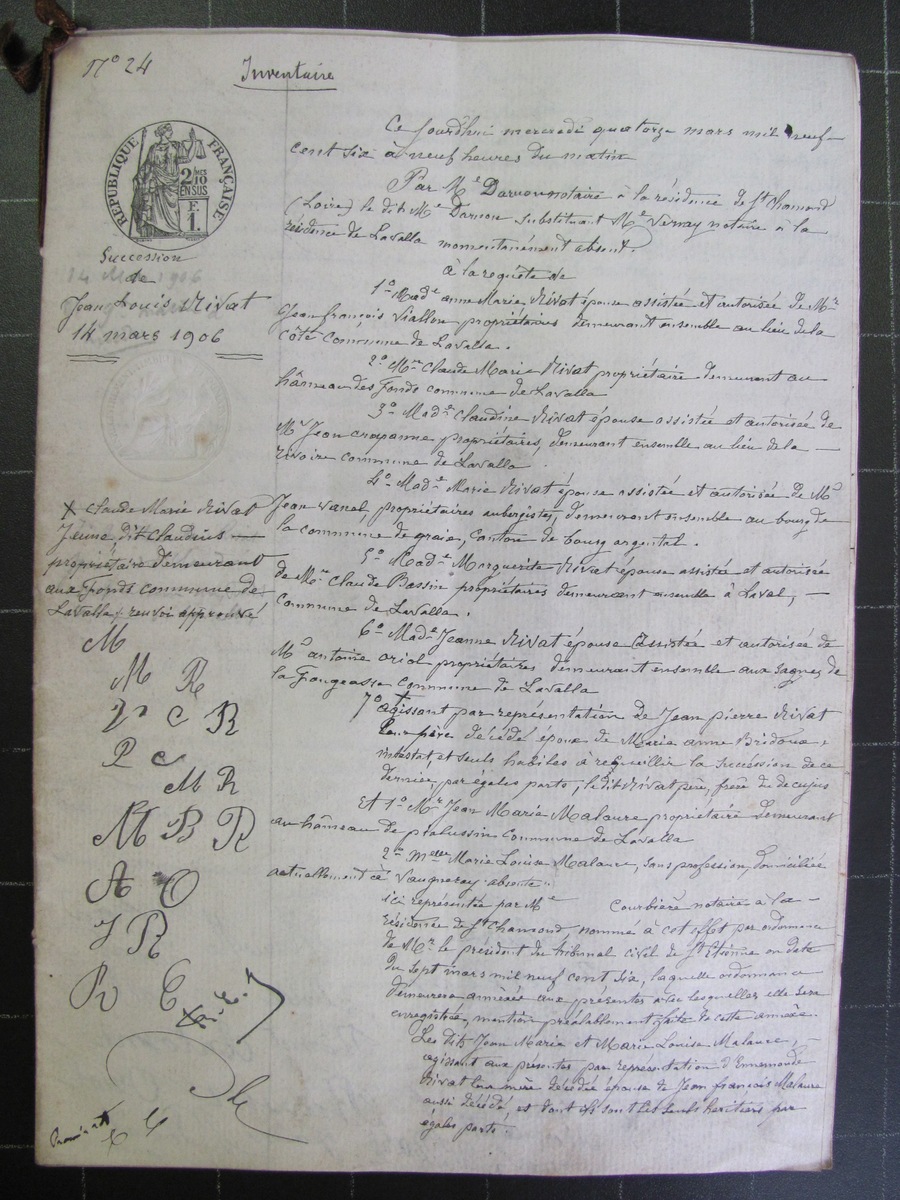 N° 24
Inventaire
RÉPUBLIQUE FRANÇAISE
2/10 MES
EN SUS
F.
1.
Succession
de
Jean Louis Rivat
14 mars 1906
Ce jourd'hui mercredi quatorze mars mil neuf
cent six à neuf heures du matin
Par Me notaire à la résidence de St Chamond
(Loire) le dit Me substituant Me Vernay notaire à la
résidence de Lavalla momentanément absent.
à la requête de
1° Made anne Marie Rivat épouse assistée et autorisée de Mr
Jean françois Viallon propriétaires demeurant ensemble au lieu de la
côte commune de Lavalla.
2° Mr Claude Marie Rivat propriétaire demeurant au
hâmeau des Fonds commune de Lavalla
3° Made Claudine Rivat épouse assistée et autorisée de
Mr Jean crapanne propriétaires, demeurant ensemble au lieu de la
rivoire commune de Lavalla.
4° Made Marie Rivat épouse assistée et autorisée de Mr
Jean Vanel, propriétaires aubergistes, demeurant ensemble au bourg de
la commune de graix, canton de bourg argental.
5° Made Marguerite Rivat épouse assistée et autorisée
de Mr Claude Bassin propriétaires demeurant ensemble à Laval,
commune de Lavalla.
6° Made Jeanne Rivat épouse assistée et autorisée de
Mr antoine oriol propriétaires demeurant ensemble aux sagnes de
la Fougeasse commune de Lavalla
7° X
agissant par représentation de Jean pierre Rivat
leur père décédé époux de Marie anne Bridoux
intestat, et seuls habiles à recueillir la succession de ce
dernier, par égales parts, le dit Rivat père, frère du decujus
Et 1° Mr Jean Marie Malaure propriétaire demeurant
au hâmeau de commune de Lavalla
2° Melle Marie Louise Malaure, sans profession, domiciliée
actuellement à Vaugneray absente
ici représentée par Me Courbière notaire à la
résidence de St Chamond, nommé à cet effet par ordonnance
de Mr le président du tribunal civil de St Etienne en date
du sept mars mil neuf cent six, laquelle ordonnance
demeurera annéxée aux présentes avec lesquelles elle sera
enregistrée, mention préalablement faite de cette annéxe.
Les dits Jean Marie et Marie Louise Malaure,
agissant aux présentes par représentation d'Ennemonde
Rivat leur mère décédée épouse de Jean françois Malaure
aussi décédé, et dont ils sont les seuls heritiers par
égales parts.
X Claude Marie Rivat
Jeune dit Claudius
propriétaire demeurant
aux Fonds commune de
Lavalla / renvoi approuvé
M
M R
C R
P C
M R
M B R
A O
J R
R C